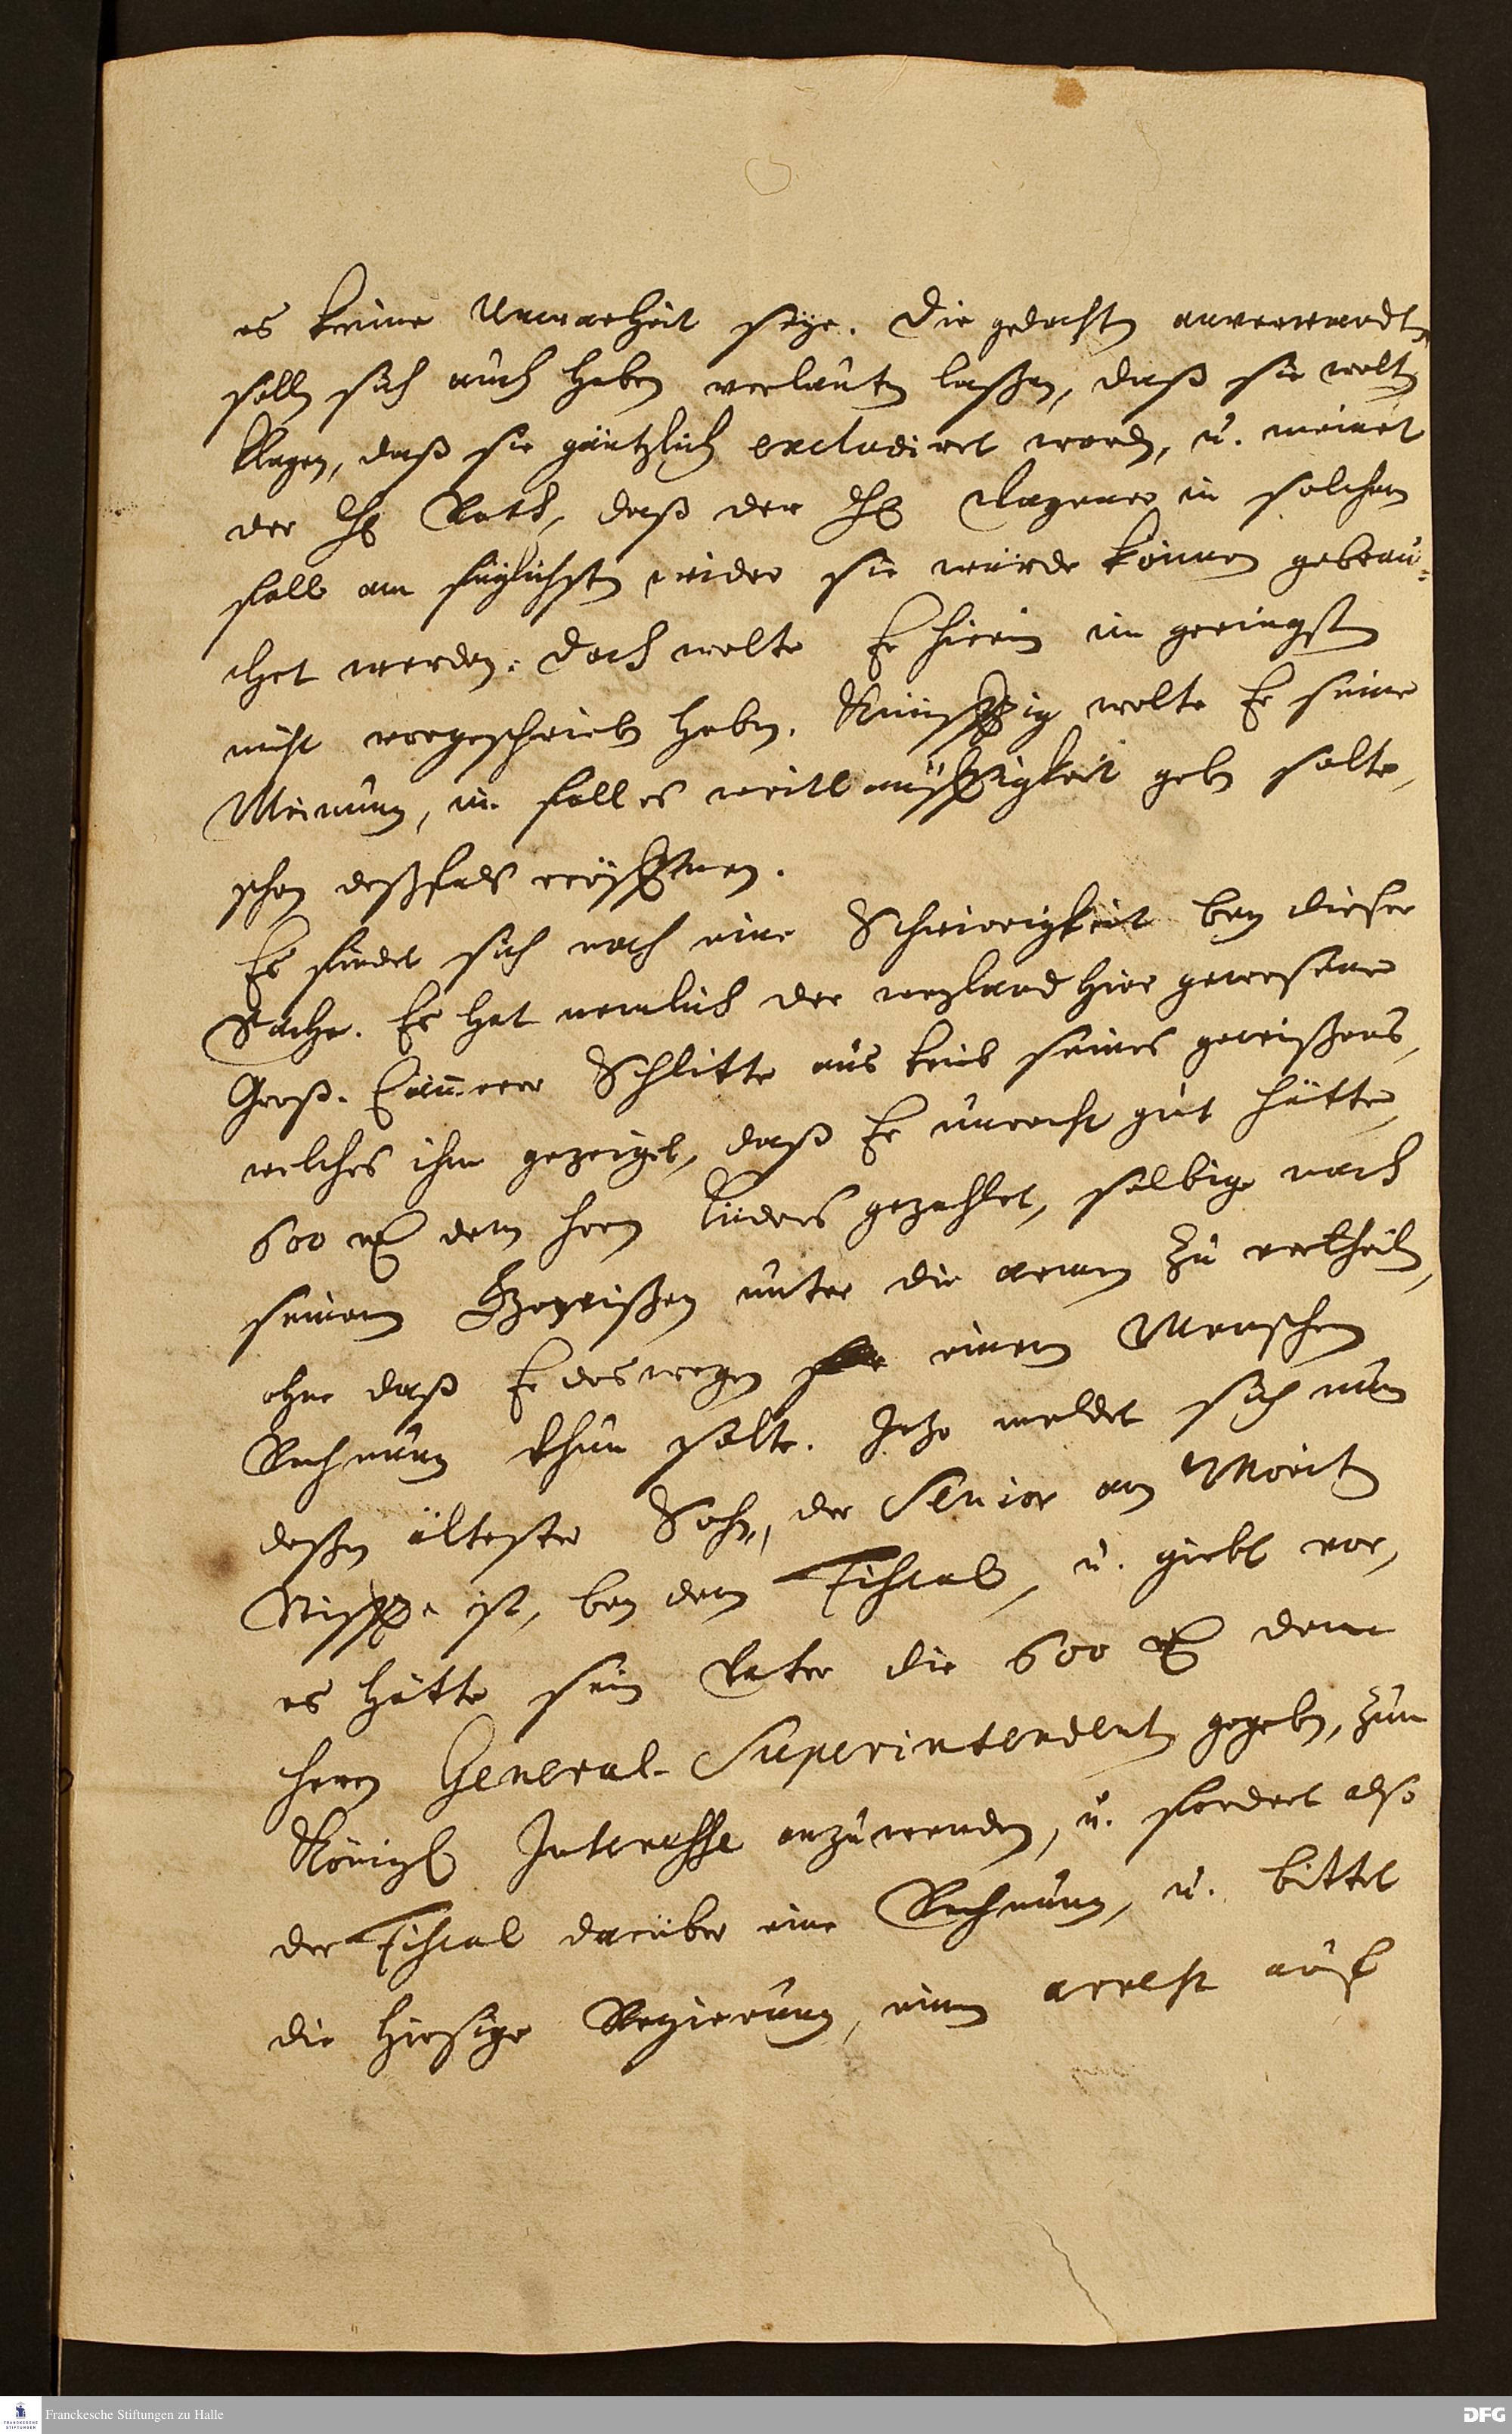 es keine Unwarheit seye. Die gedachten anverwandten
sollen sich auch haben verlauten laßen, daß sie wolten
klagen, daß sie gäntzlich excludiret worden, u. meinet
der H. Rath, daß der H. Wagener in solchem
fall am füglichsten wider sie würde können gebrau-
chet werden. Doch wolte Er hierin im geringsten
nicht vorgeschrieben haben. Künfftig wolte Er seine
Meinung, im fall es weitläufftigkeit geben solte,
schon deßfals eröffnen.
Es findet sich noch eine Schwierigkeit bey dieser
Sache. Es hat nemlich der weyland hier gewesene
Groß-Cäm̄erer Schlitte aus trieb seines gewißens,
welches ihm gezeiget, daß Er unrecht gut hätte,
600 rthl dem Herrn Lüders gezahlet, selbige nach
seinem Gewißen unter die armen zu vertheilen,
ohne daß Er deswegen einem Menschen
Rechnung thun solte. Jetzo meldet sich nun
deßen ältester Sohn, der Senior an Moritz
Stifft ist, bey dem Fiscal, u. giebt vor,
es hätte sein Vater die 600 rthl dem
Herrn General-Superintendenten gegeben, zum
Königl Interesse anzuwenden, u. fordert also
der Fiscal darüber eine Rechnung, u. bittet
die hiesige Regierung, einen arrest auf
Franckesche Stiftungen zu Halle
DFG